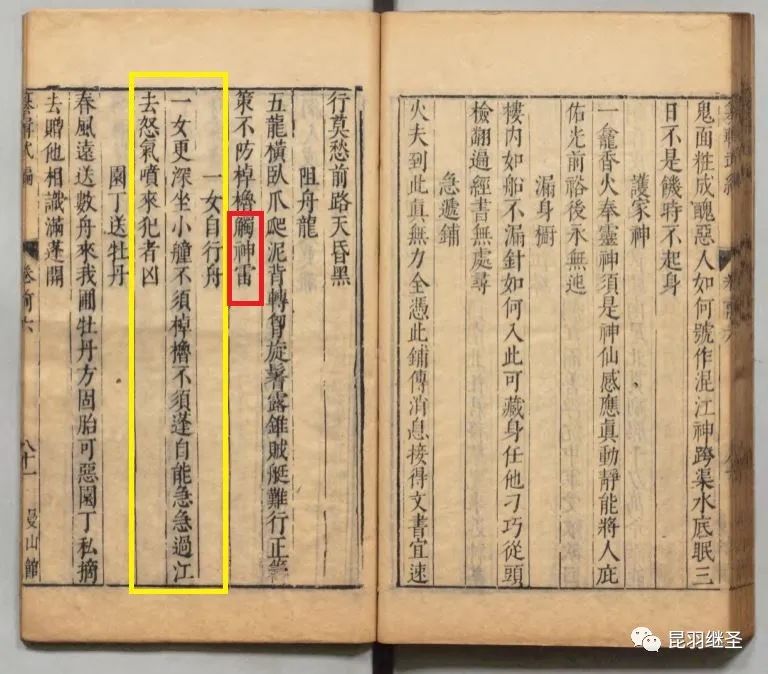 鬼面粧成醜惡人如何號作混江神跨渠水底眠三
日不是饑時不起身
護家神
一龕香火奉靈神須是神仙感應真動靜能將人庇
佑光前裕後永無迍
漏身櫥
樓內如船不漏針如何入此可藏身任他刁巧從頭
檢翻過經書無處尋
急遞鋪
火夫到此真無力全憑此鋪傳消息接得文書宜速
行莫愁前路天昏黑
阻舟龍
五龍橫臥爪爬泥背轉智旋署露錐賊艇難行正籌
策不防棹櫓觸神雷
一女自行舟
一女更深坐小艟不須棹櫓不須蓬自能急急過江
去怒氣噴來犯者凶
園丁送牡丹
春風遠送數舟來我圃牡丹方固胎可惡園丁私摘
去贈他相識滿蓬開
武編
卷前六
八十一
曼山館
昆羽继圣